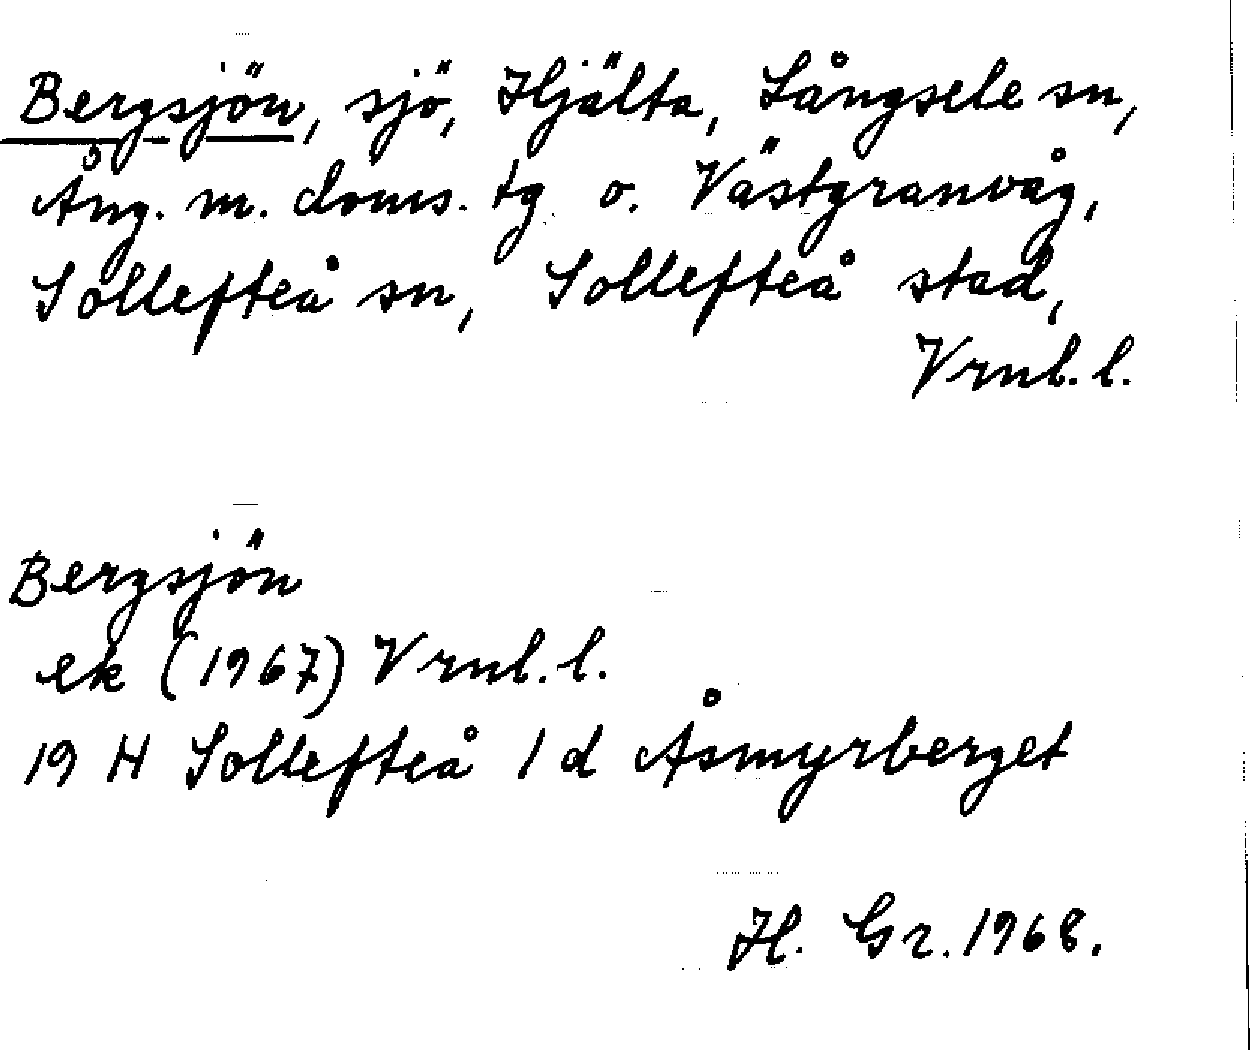 Bergsjön, sjö, Hjälta, Långsele sn,
Ång. m. doms. tg o. Västgranvåg,
Sollefteå sn, Sollefteå stad,
Vrnl. l.
Bergsjön
ek (1967) Vrnl. l.
19 H Sollefteå 1 d Åsmyrberget
H. Gr. 1968.